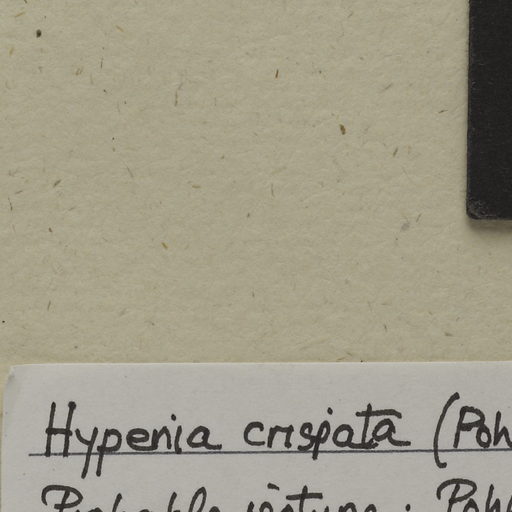 Hypenia crispata (Poh
Probable isotype : Poh